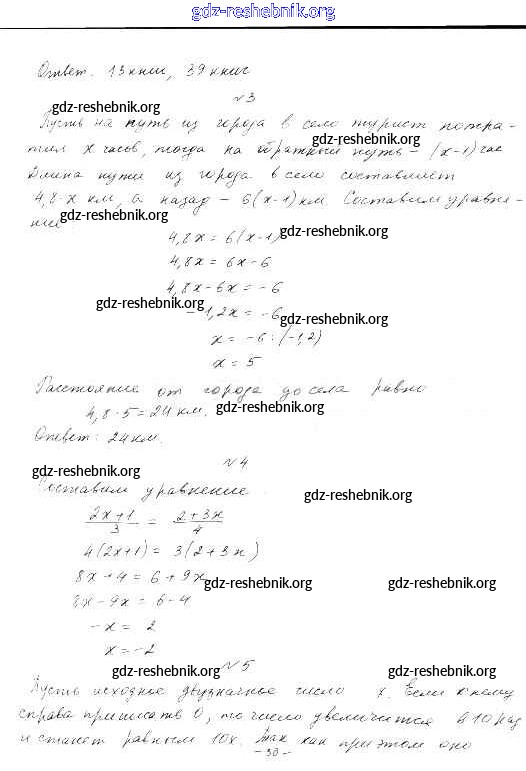 gdz-reshebnik.org
Ответ. 13 книг, 39 книг
№3
gdz-reshebnik.org
Пусть на путь из города в село турист потра-
gdz-reshebnik.org
тил x часов, тогда на обратный путь - (x-1) час
Длина пути из города в село составляет
4,8·x км, а назад - 6(x-1) км. Составим уравне-
gdz-reshebnik.org
ние
4,8x = 6(x-1) gdz-reshebnik.org
4,8x = 6x-6
4,8x-6x = -6
gdz-reshebnik.org
-1,2x = -6 gdz-reshebnik.org
x = -6:(-1,2)
x = 5
Расстояние от города до села равно
4,8·5=24 км. gdz-reshebnik.org
Ответ: 24 км.
№4
gdz-reshebnik.org
Составим уравнение gdz-reshebnik.org
2x+1/3 = 2+3x/4
4(2x+1) = 3(2+3x)
8x+4 = 6+9x gdz-reshebnik.org gdz-reshebnik.org
8x-9x = 6-4
-x = 2
x = -2
gdz-reshebnik.org №5 gdz-reshebnik.org
Пусть исходное двузначное число x. Если к нему
справа приписать 0, то число увеличится в 10 раз
и станет равным 10x. Так как при этом оно
-30-